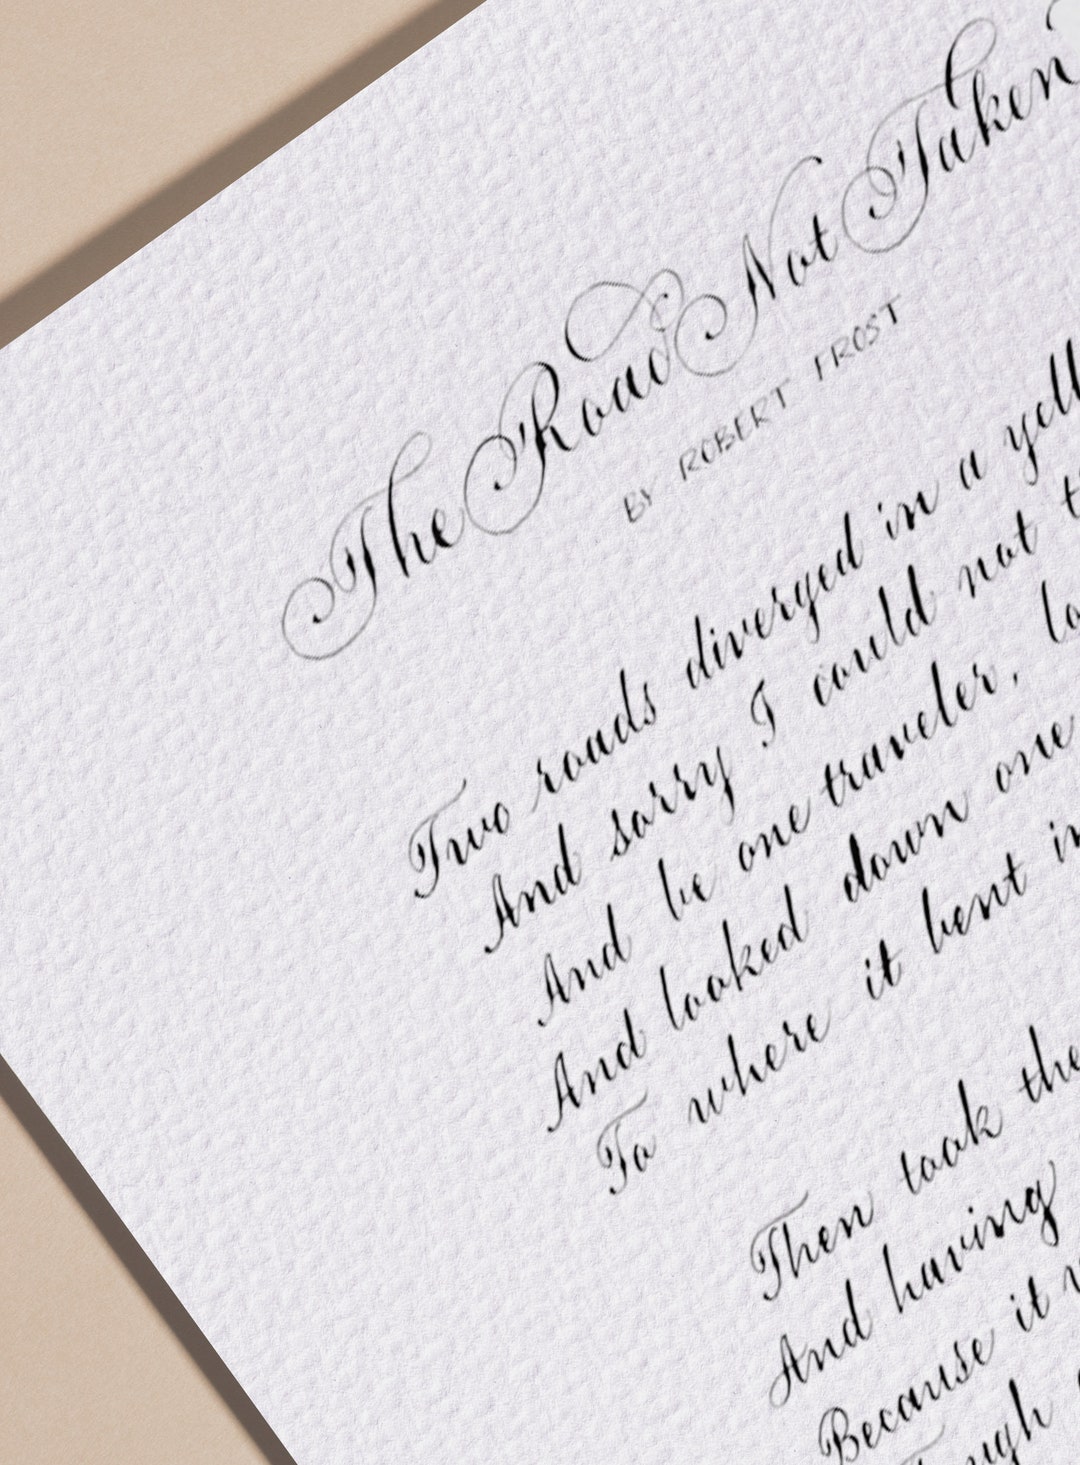 The Road Not Taken
BY ROBERT FROST
Two roads diverged in a yell
And sorry I could not t
And be one traveler, lo
And looked down one
To where it bent in
Then took the
And having
Because it w
ough